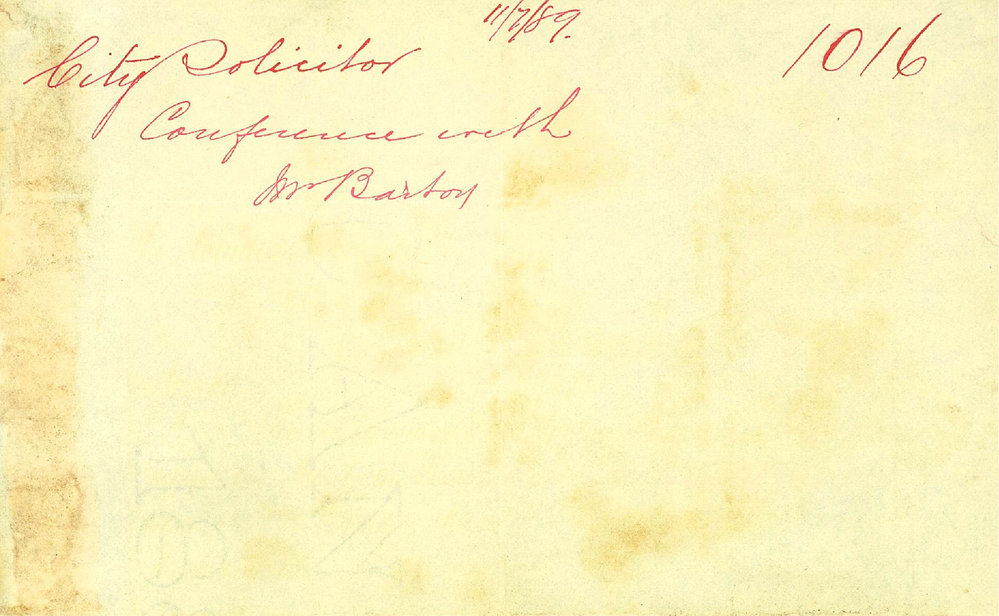 11/7/89.
1016
City Solicitor
Conference with
Mr Barton